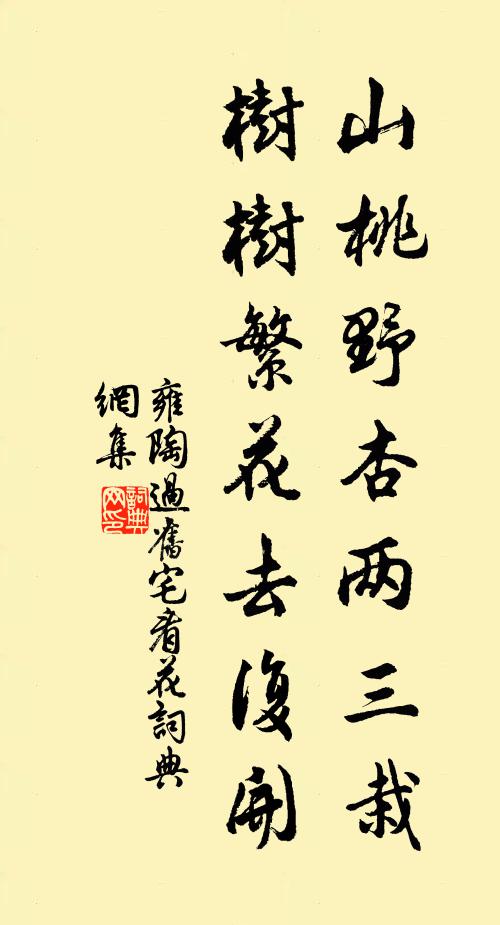 山桃野杏两三栽
樹樹繁花去復開
雍陶過舊宅看花詞典
網集
詞典
网印